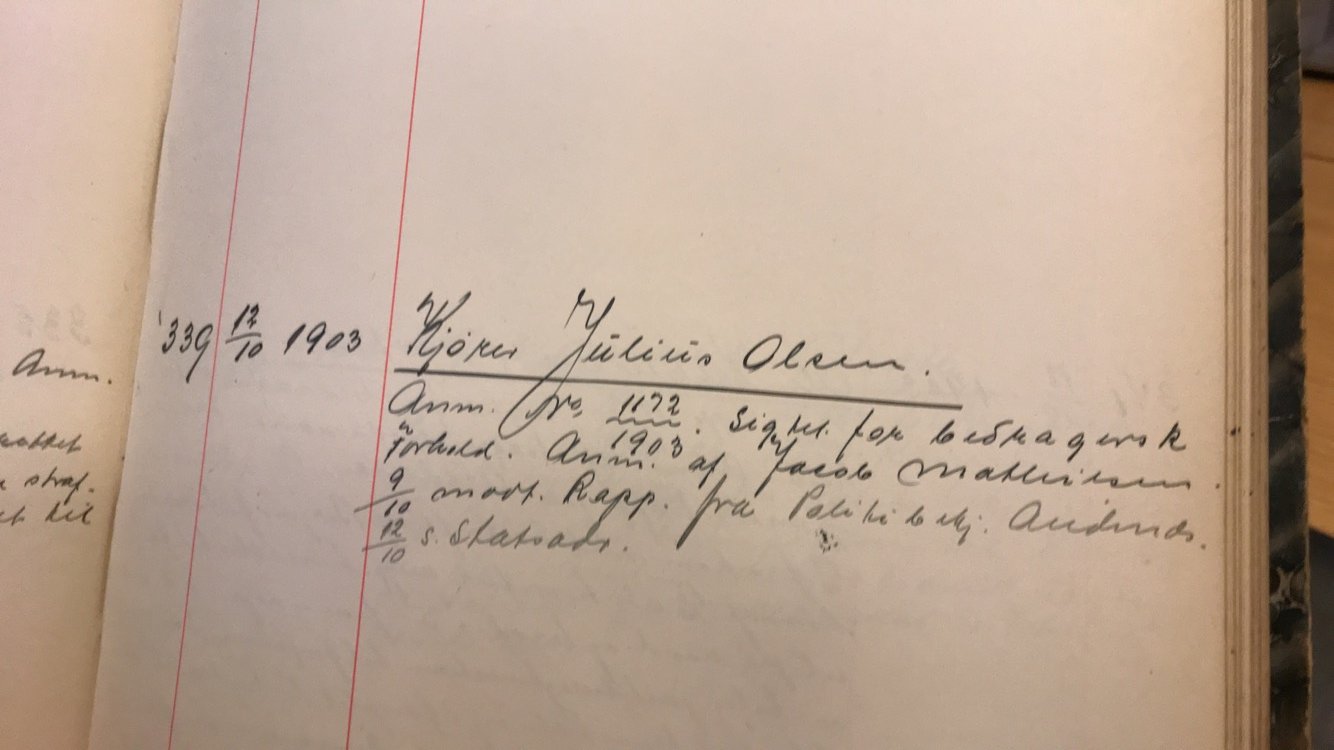 Anm.
straf-
339 12/10 1903 Kjører Julius Olsen.
Anm. No 1172/1903. Sigtet for bedragersk
Forhold. Anm. af Jacob Mathisen.
9/10 modt. Rapp. fra Politibetj.
12/10 s. Statsadv.